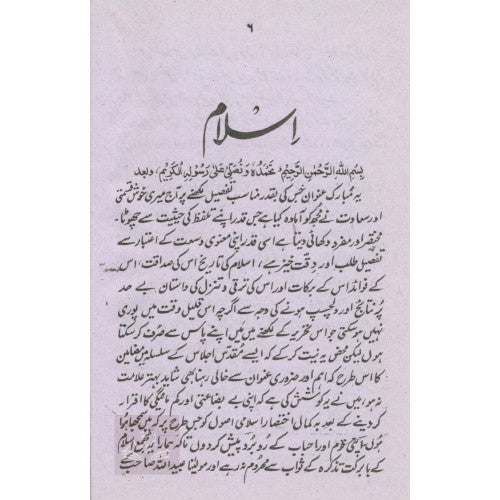 ۶
اِسلام
بِسْمِ اللهِ الرَّحْمٰنِ الرَّحِیْمِ نَحْمَدُهٗ وَ نُصَلِّیْ عَلیٰ رَسُوْلِهِ الْکَرِیْمِ، وبعد
یہ مُبارک عنوان جس کی بقدر مناسب تفصیل لکھنے پر آج میری خوش قسمتی
اور سعادت نے مجھ کو آمادہ کیا ہے جس قدر اپنے تلفظ کی حیثیت سے چھوٹا۔
مختصر اور مفرد دکھائی دیتا ہے اسی قدر اپنی معنوی وسعت کے اعتبار سے
تفصیل طلب اور دِقّت خیز ہے، اسلام کی تاریخ اس کی صداقت، اس
کے فوائد اس کے برکات اور اس کی ترقی و تنزل کی داستان بے حد
پُر نتائج اور دلچسپ ہونے کی وجہ سے اگرچہ اس قلیل وقت میں پوری
نہیں ہو سکتی جو اس تحریر کے لکھنے میں میں اپنے پاس سے صرف کر سکتا
ہوں لیکن محض یہ نیت کر کے کہ ایسے مقدس اجلاس کے سلسلہ میں مضامین
کا اس طرح کے اہم اور ضروری عنوان سے خالی رہنا بھی شاید بہتر علامت
نہ ہو، میں نے یہ کوشش کی ہے کہ اپنی بے بضاعتی اور کم مائیگی کا اقرار
کر دینے کے بعد بہ کمال اختصار اسلامی اصول کو جس طرح پر کہ میں سمجھا ہوا
ہوں اپنی قوم اور احباب کے رُو بَرُو پیش کر دوں تاکہ ہمارا یہ مجمع اسلام
کے با برکت تذکرہ کے ثواب سے محروم نہ رہے اور مولینا عبید اللہ صاحب نے